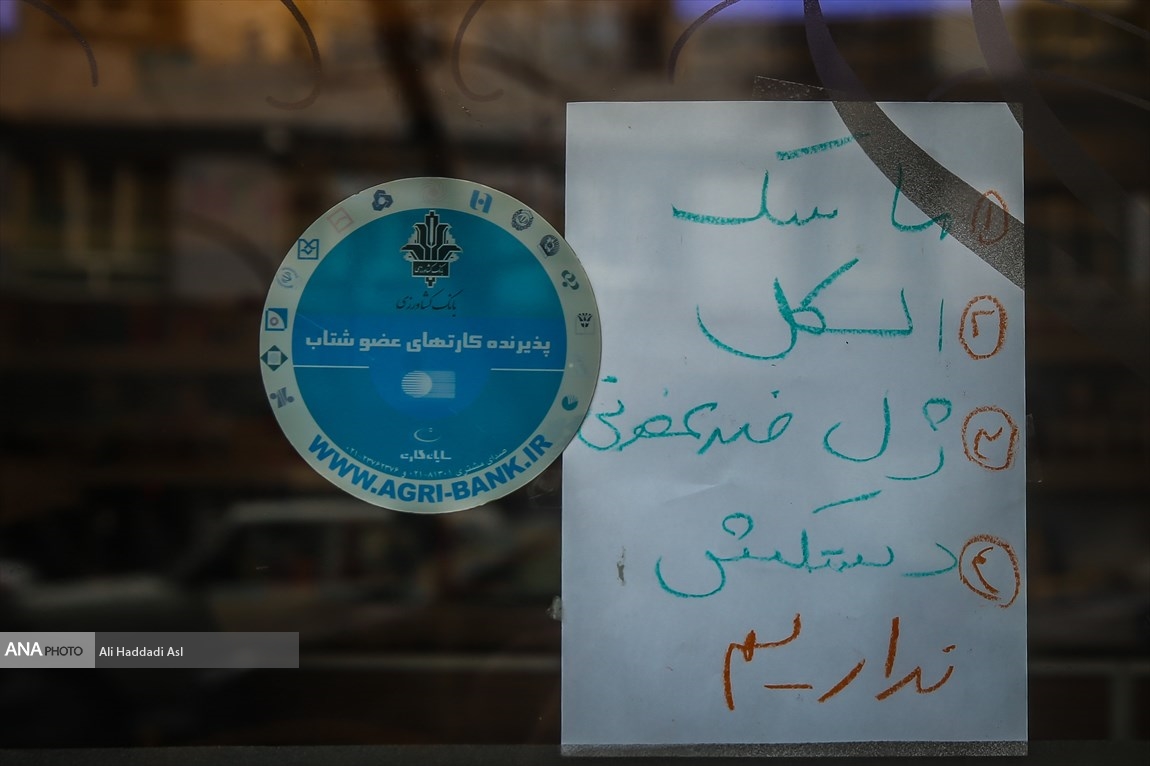 ۱ ماسک
۲ الکل
۳ ژل ضدعفونی
۴ دستکش
نداریم
بانک کشاورزی
بانک کشاورزی
پذیرنده کارتهای عضو شتاب
WWW.AGRI-BANK.IR
ANA PHOTO
Ali Haddadi Asl